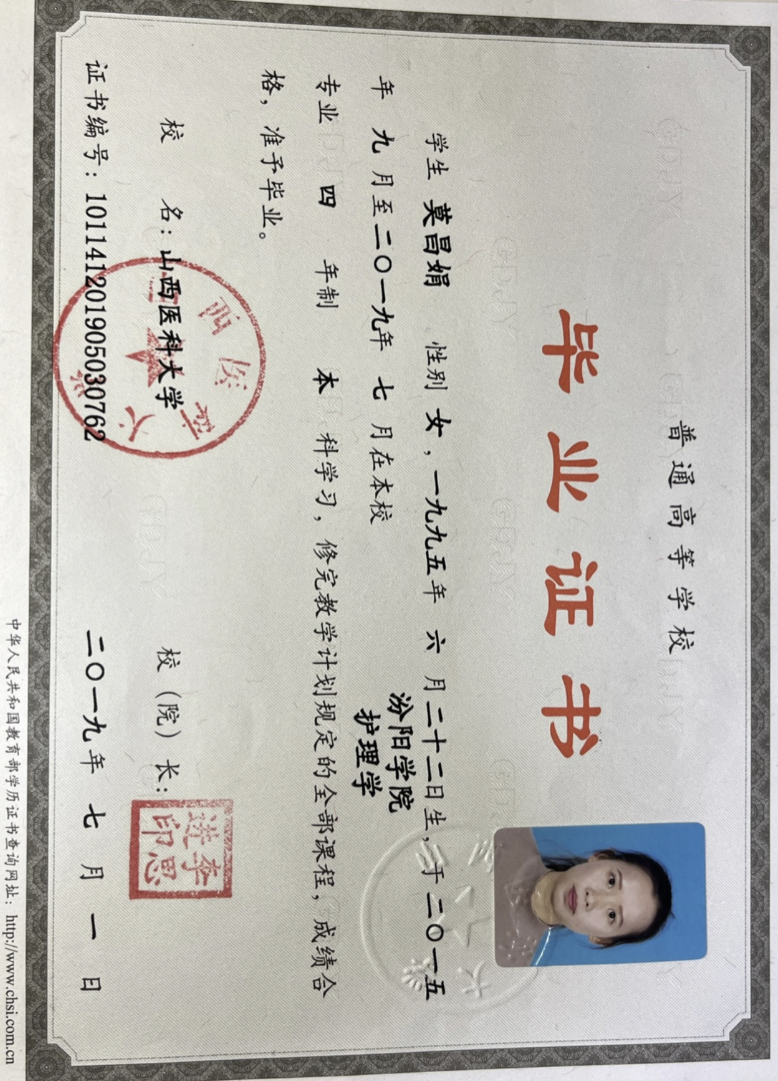 普通高等学校
毕业证书
学生 莫昌娟 性别 女，一九九五年 六 月二十二日生，于二〇一五
年 九 月至二〇一九年 七 月在本校 汾阳学院
护理学
专业 四 年制 本 科学习，修完教学计划规定的全部课程，成绩合
格，准予毕业。
校 名：山西医科大学
校（院）长：
李思进印
证书编号：101141201905030762
二〇一九年 七 月 一 日
中华人民共和国教育部学历证书查询网址：http://www.chsi.com.cn